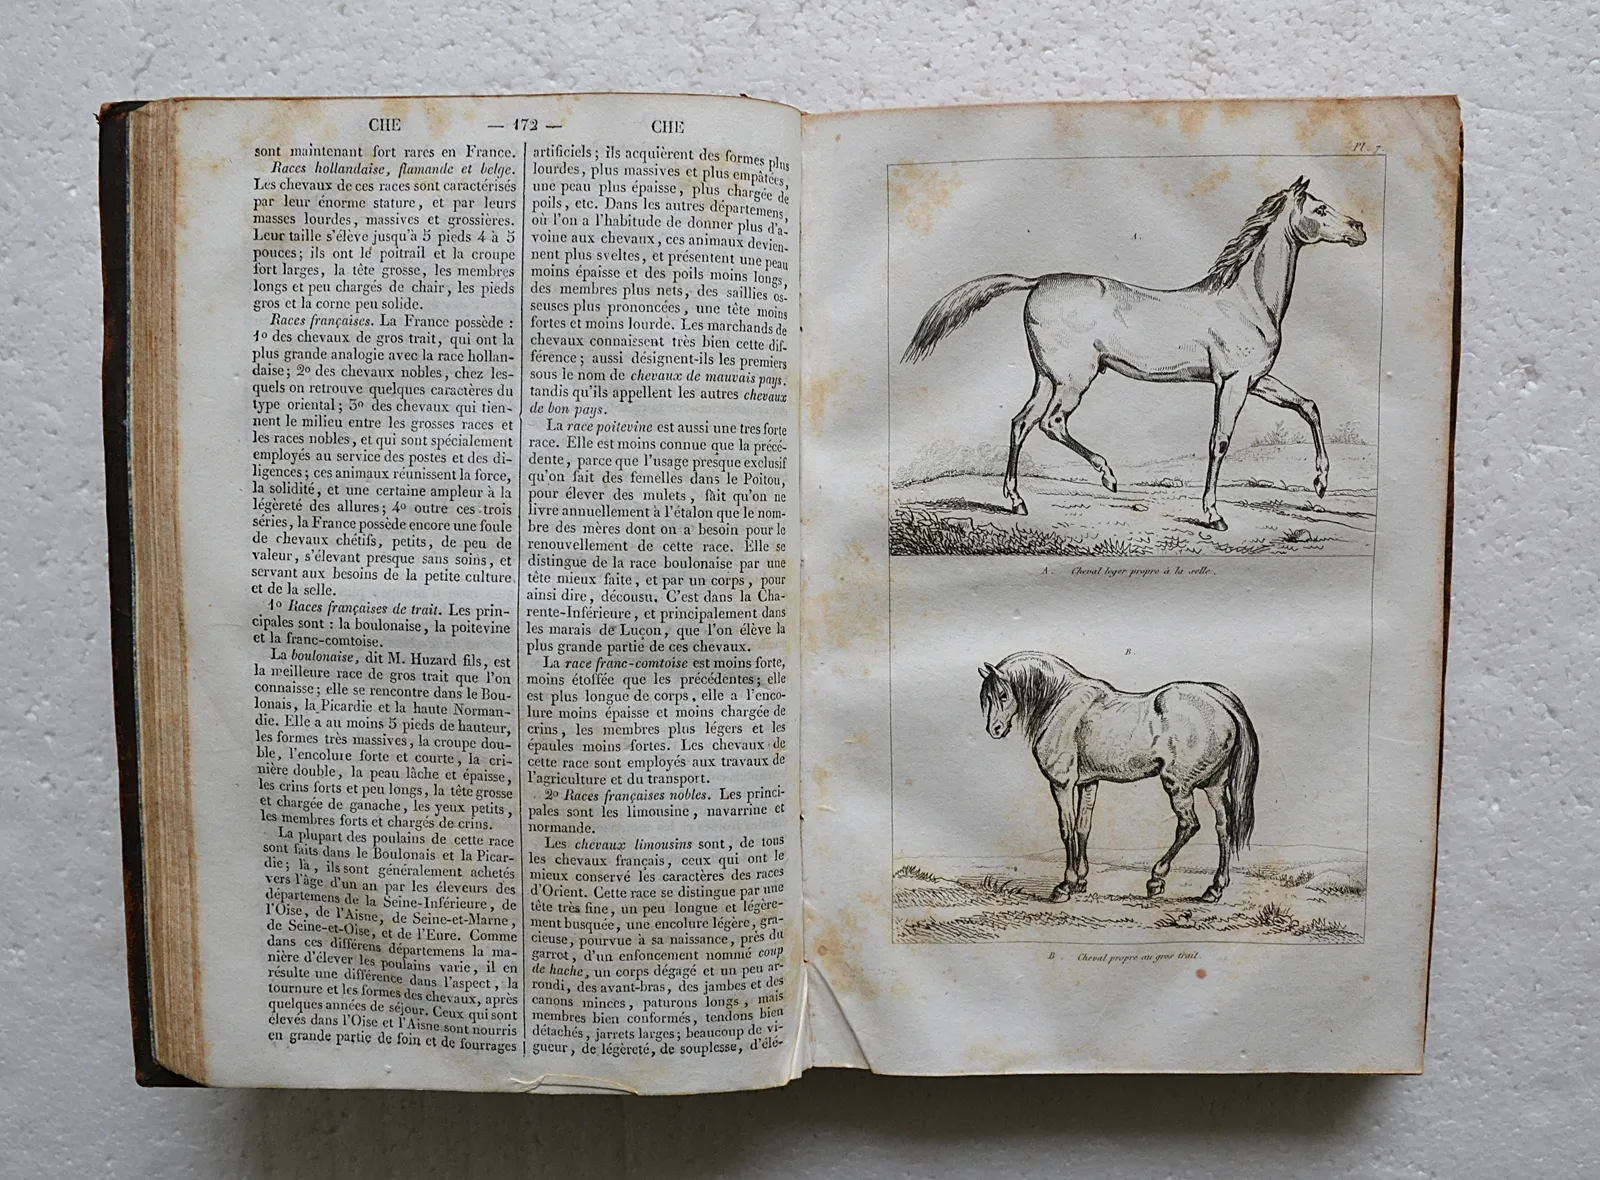 CHE — 172 — CHE
sont maintenant fort rares en France.
Races hollandaise, flamande et belge.
Les chevaux de ces races sont caractérisés
par leur énorme stature, et par leurs
masses lourdes, massives et grossières.
Leur taille s'élève jusqu'à 5 pieds 4 à 5
pouces; ils ont le poitrail et la croupe
fort larges, la tête grosse, les membres
longs et peu chargés de chair, les pieds
gros et la corne peu solide.
Races françaises. La France possède :
1o des chevaux de gros trait, qui ont la
plus grande analogie avec la race hollan-
daise; 2o des chevaux nobles, chez les-
quels on retrouve quelques caractères du
type oriental; 3o des chevaux qui tien-
nent le milieu entre les grosses races et
les races nobles, et qui sont spécialement
employés au service des postes et des di-
ligences; ces animaux réunissent la force,
la solidité, et une certaine ampleur à la
légèreté des allures; 4o outre ces trois
séries, la France possède encore une foule
de chevaux chétifs, petits, de peu de
valeur, s'élevant presque sans soins, et
servant aux besoins de la petite culture
et de la selle.
1o Races françaises de trait. Les prin-
cipales sont : la boulonaise, la poitevine
et la franc-comtoise.
La boulonaise, dit M. Huzard fils, est
la meilleure race de gros trait que l'on
connaisse; elle se rencontre dans le Bou-
lonais, la Picardie et la haute Norman-
die. Elle a au moins 5 pieds de hauteur,
les formes très massives, la croupe dou-
ble, l'encolure forte et courte, la cri-
nière double, la peau lâche et épaisse,
les crins forts et peu longs, la tête grosse
et chargée de ganache, les yeux petits,
les membres forts et chargés de crins.
La plupart des poulains de cette race
sont faits dans le Boulonais et la Picar-
die; là, ils sont généralement achetés
vers l'âge d'un an par les éleveurs des
départemens de la Seine-Inférieure, de
l'Oise, de l'Aisne, de Seine-et-Marne,
de Seine-et-Oise, et de l'Eure. Comme
dans ces différens départemens la ma-
nière d'élever les poulains varie, il en
résulte une différence dans l'aspect, la
tournure et les formes des chevaux, après
quelques années de séjour. Ceux qui sont
élevés dans l'Oise et l'Aisne sont nourris
en grande partie de foin et de fourrages
artificiels; ils acquièrent des formes plus
lourdes, plus massives et plus empâtées,
une peau plus épaisse, plus chargée de
poils, etc. Dans les autres départemens,
où l'on a l'habitude de donner plus d'a-
voine aux chevaux, ces animaux devien-
nent plus sveltes, et présentent une peau
moins épaisse et des poils moins longs,
des membres plus nets, des saillies os-
seuses plus prononcées, une tête moins
fortes et moins lourde. Les marchands de
chevaux connaissent très bien cette dif-
férence; aussi désignent-ils les premiers
sous le nom de chevaux de mauvais pays,
tandis qu'ils appellent les autres chevaux
de bon pays.
La race poitevine est aussi une tres forte
race. Elle est moins connue que la précé-
dente, parce que l'usage presque exclusif
qu'on fait des femelles dans le Poitou,
pour élever des mulets, fait qu'on ne
livre annuellement à l'étalon que le nom-
bre des mères dont on a besoin pour le
renouvellement de cette race. Elle se
distingue de la race boulonaise par une
tête mieux faite, et par un corps, pour
ainsi dire, décousu. C'est dans la Cha-
rente-Inférieure, et principalement dans
les marais de Luçon, que l'on élève la
plus grande partie de ces chevaux.
La race franc-comtoise est moins forte,
moins étoffée que les précédentes; elle
est plus longue de corps, elle a l'enco-
lure moins épaisse et moins chargée de
crins, les membres plus légers et les
épaules moins fortes. Les chevaux de
cette race sont employés aux travaux de
l'agriculture et du transport.
2o Races françaises nobles. Les princi-
pales sont les limousine, navarrine et
normande.
Les chevaux limousins sont, de tous
les chevaux français, ceux qui ont le
mieux conservé les caractères des races
d'Orient. Cette race se distingue par une
tête très fine, un peu longue et légère-
ment busquée, une encolure légère, gra-
cieuse, pourvue à sa naissance, près du
garrot, d'un enfoncement nommé coup
de hache, un corps dégagé et un peu ar-
rondi, des avant-bras, des jambes et des
canons minces, paturons longs, mais
membres bien conformés, tendons bien
détachés, jarrets larges; beaucoup de vi-
gueur, de légèreté, de souplesse, d'élé-
Pl. 7.
A.
A. Cheval leger propre à la selle.
B.
B. Cheval propre au gros trait.